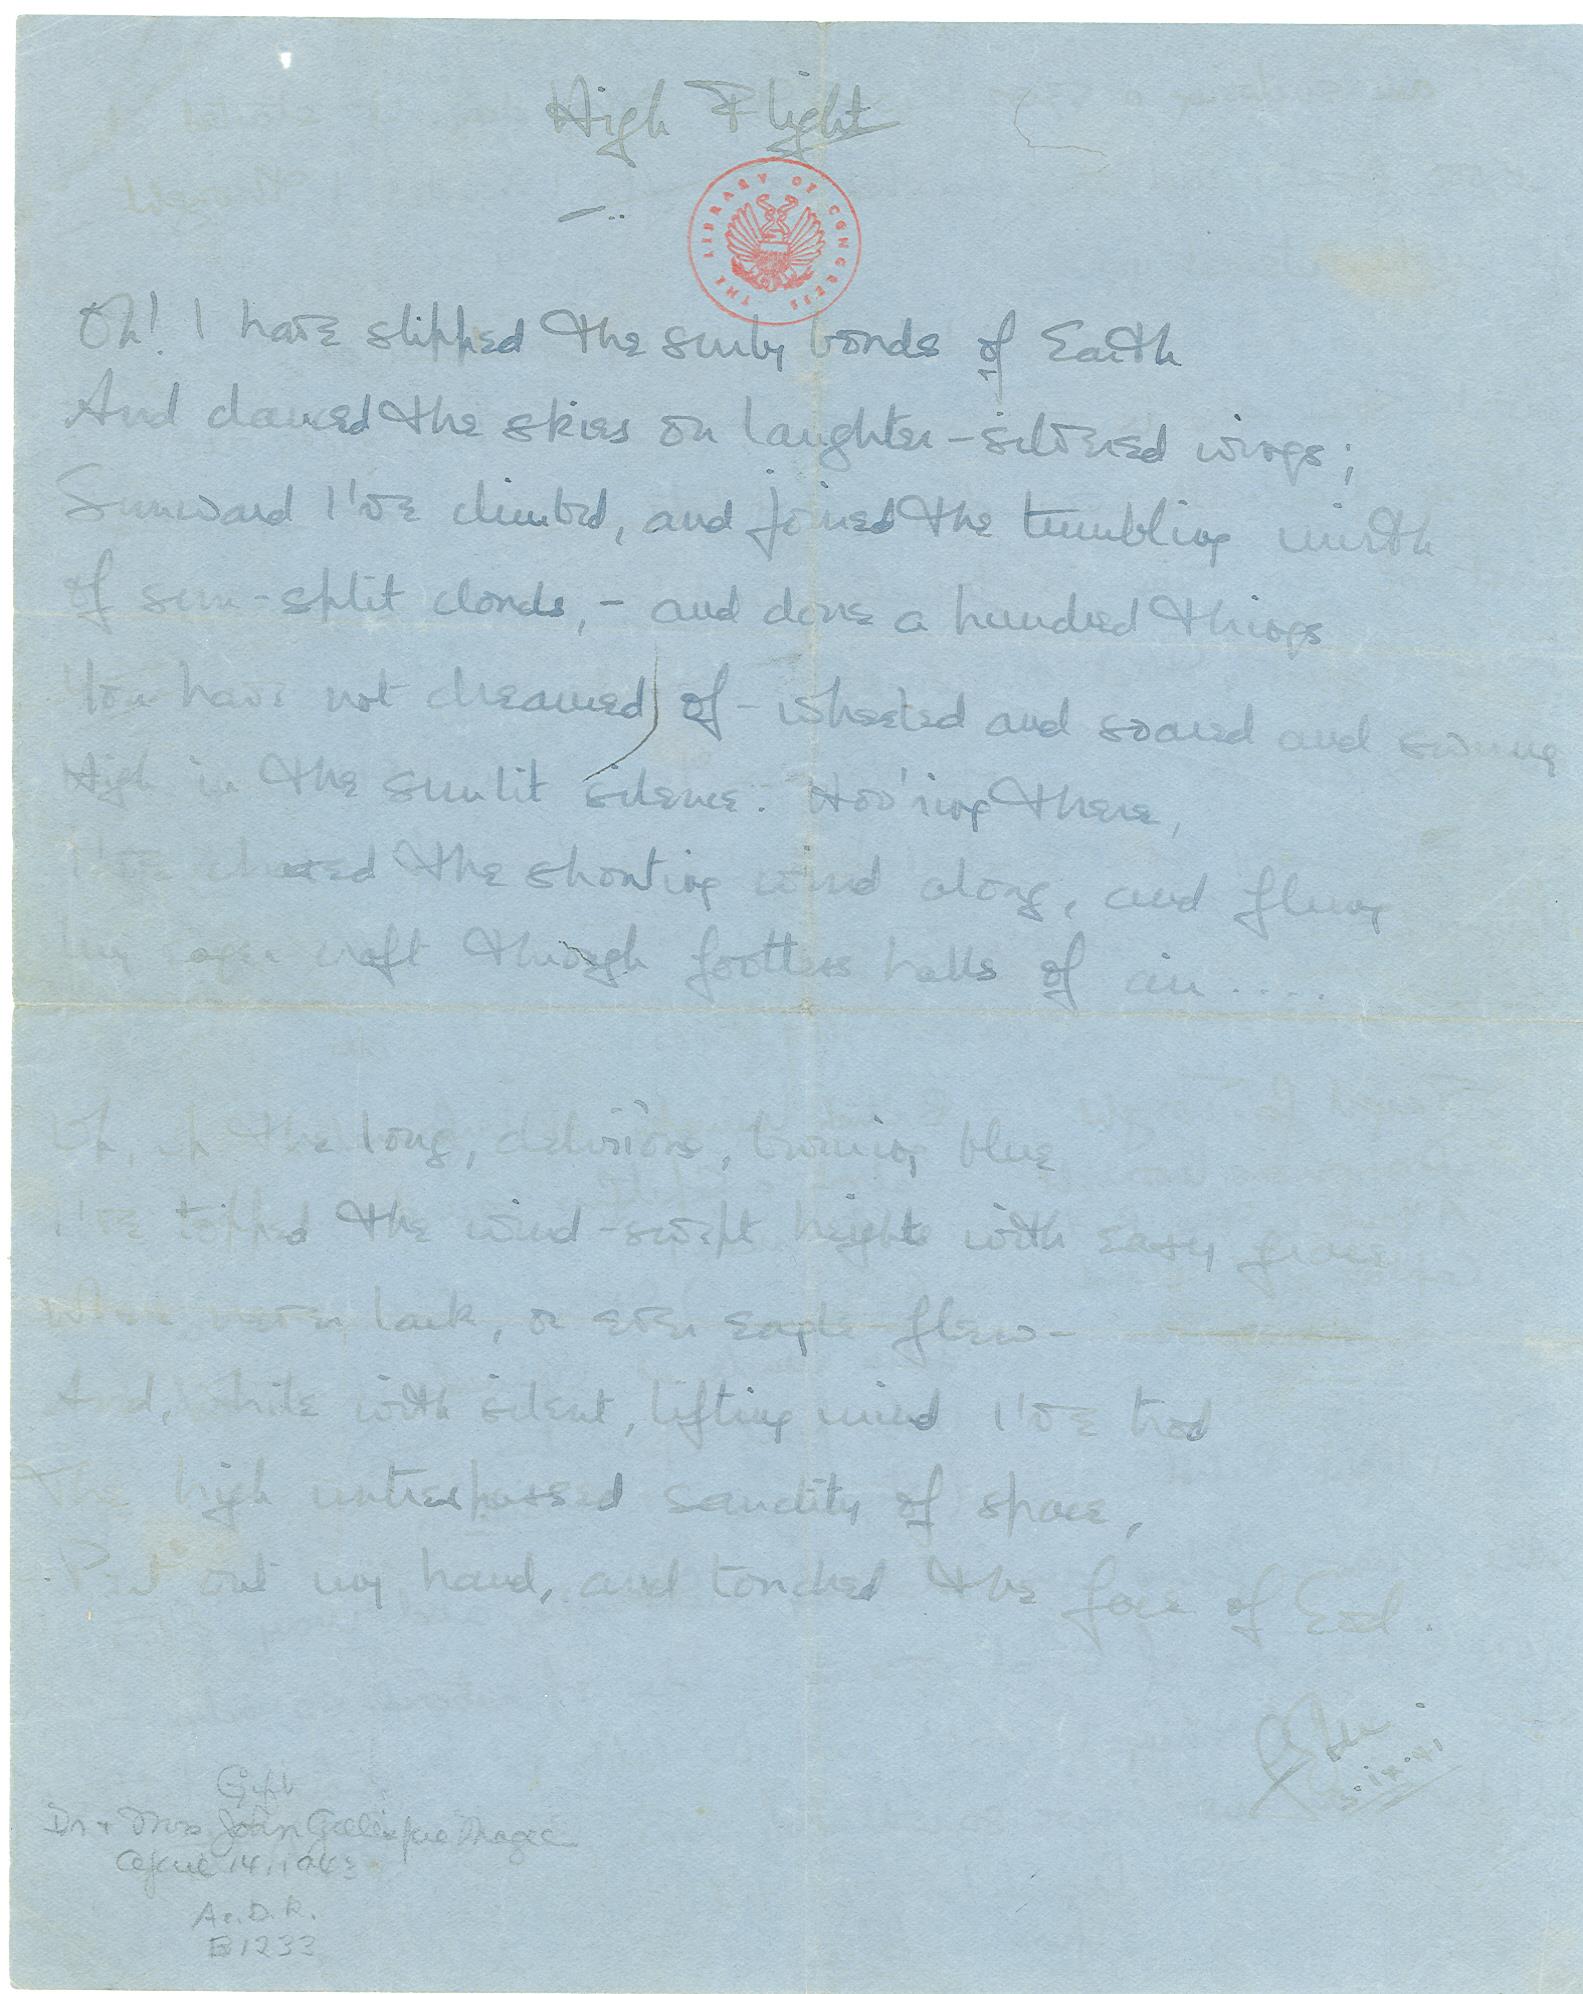 High Flight
THE LIBRARY OF CONGRESS
Oh! I have slipped the surly bonds of Earth
And danced the skies on laughter-silvered wings;
Sunward I've climbed, and joined the tumbling mirth
of sun-split clouds, - and done a hundred things
You have not dreamed of - wheeled and soared and swung
High in the sunlit silence. Hov'ring there,
I've chased the shouting wind along, and flung
My eager craft through footless halls of air ....
Up, up the long, delirious, burning blue
I've topped the wind-swept heights with easy grace
Where never lark, or ever eagle flew -
And, while with silent, lifting mind I've trod
The high untrespassed sanctity of space,
Put out my hand, and touched the face of God.
3.ix.41
Gift
Dr + Mrs John Gillespie Magee
April 14, 1943
Ac. D. R.
B1233